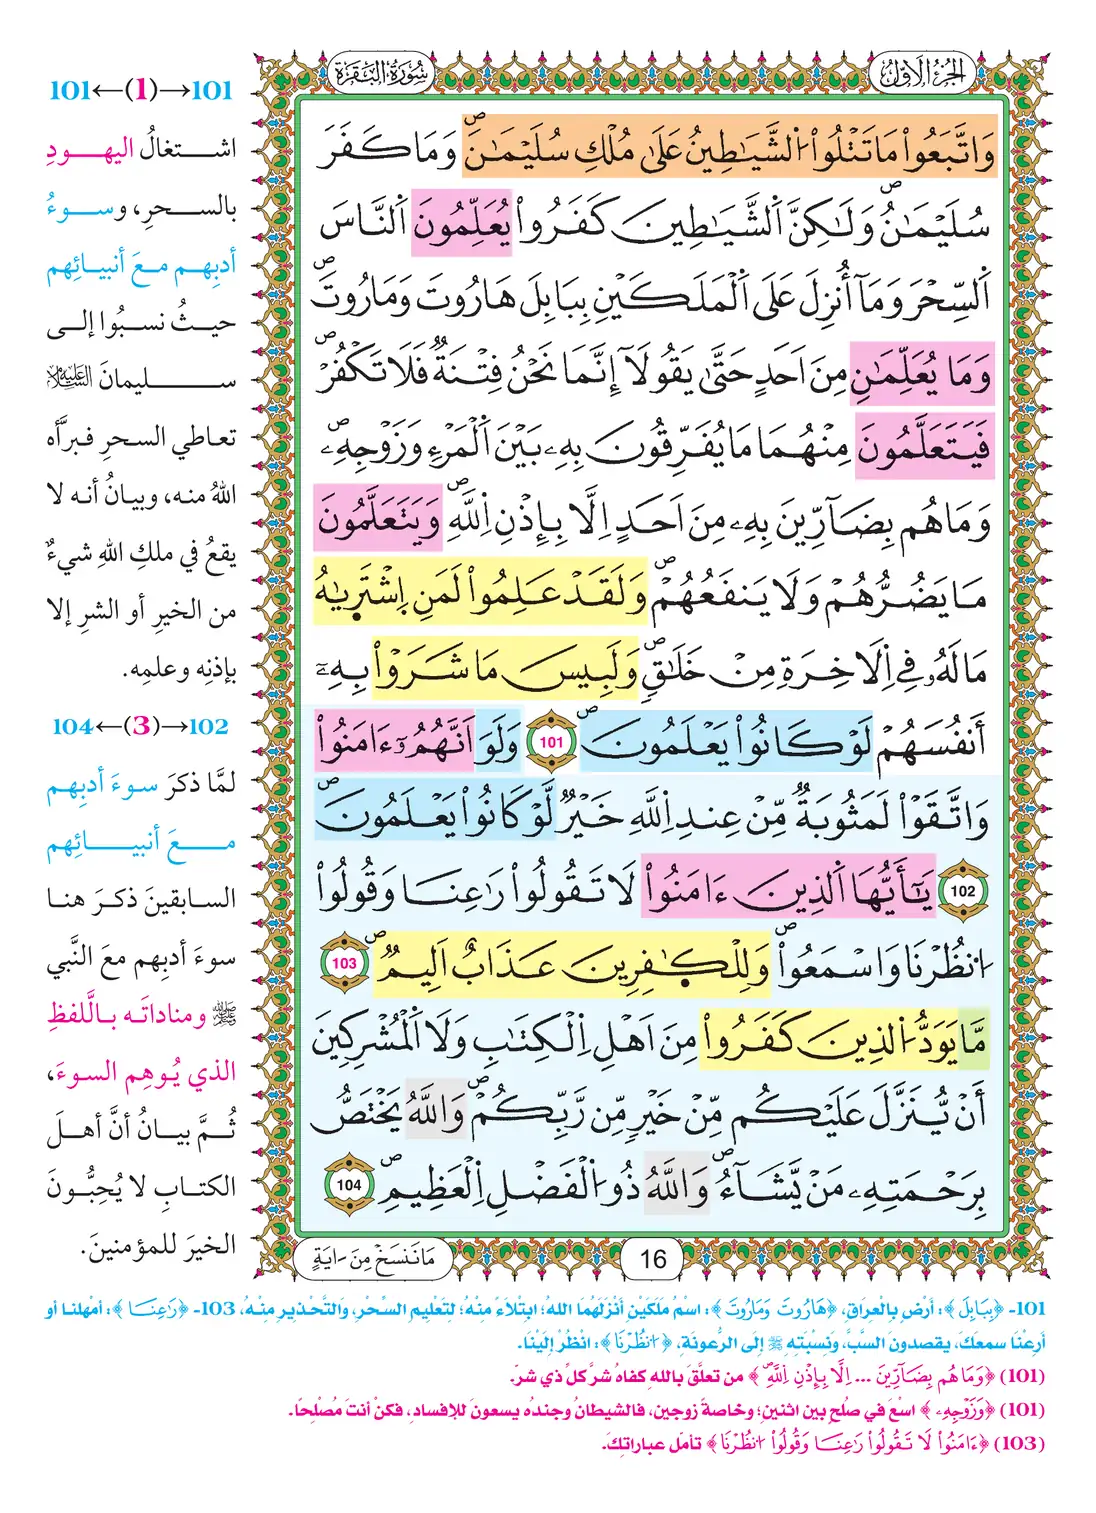 الجزء الأول
سورة البقرة
وَاتَّبَعُواْ مَا تَتْلُواْ الشَّيَٰطِينُ عَلَىٰ مُلْكِ سُلَيْمَٰنَ ۖ وَمَا كَفَرَ
سُلَيْمَٰنُ ۖ وَلَٰكِنَّ اَلشَّيَٰطِينَ كَفَرُواْ يُعَلِّمُونَ اَلنَّاسَ
اَلسِّحْرَ وَمَآ أُنزِلَ عَلَى اَلْمَلَكَيْنِ بِبَابِلَ هَارُوتَ وَمَارُوتَ ۖ
وَمَا يُعَلِّمَٰنِ مِنَ اَحَدٍ حَتَّىٰ يَقُولَآ إِنَّمَا نَحْنُ فِتْنَةٌ فَلَا تَكْفُرْ ۖ
فَيَتَعَلَّمُونَ مِنْهُمَا مَا يُفَرِّقُونَ بِهِۦ بَيْنَ اَلْمَرْءِ وَزَوْجِهِۦ ۖ
وَمَا هُم بِضَآرِّينَ بِهِۦ مِنَ اَحَدٍ اِلَّا بِإِذْنِ اِللَّهِ ۖ وَيَتَعَلَّمُونَ
مَا يَضُرُّهُمْ وَلَا يَنفَعُهُمْ ۖ وَلَقَدْ عَلِمُواْ لَمَنِ اِشْتَرَىٰهُ
مَا لَهُۥ فِي اِلَاخِرَةِ مِنْ خَلَٰقٍ ۖ وَلَبِيسَ مَا شَرَوْاْ بِهِۦٓ
أَنفُسَهُمْ لَوْ كَانُواْ يَعْلَمُونَ ۖ 101 وَلَوَ اَنَّهُمُۥٓ ءَامَنُواْ
وَاتَّقَوْاْ لَمَثُوبَةٌ مِّنْ عِندِ اِللَّهِ خَيْرٌ لَّوْ كَانُواْ يَعْلَمُونَ ۖ
102 يَٰٓأَيُّهَا اَلذِينَ ءَامَنُواْ لَا تَقُولُواْ رَٰعِنَا وَقُولُواْ
اُنظُرْنَا وَاسْمَعُواْ ۖ وَلِلْكَٰفِرِينَ عَذَابٌ اَلِيمٌ ۖ 103
مَّا يَوَدُّ اُلذِينَ كَفَرُواْ مِنَ اَهْلِ اِلْكِتَٰبِ وَلَا اَلْمُشْرِكِينَ
أَنْ يُّنَزَّلَ عَلَيْكُم مِّنْ خَيْرٍ مِّن رَّبِّكُمْ ۖ وَاللَّهُ يَخْتَصُّ
بِرَحْمَتِهِۦ مَنْ يَّشَآءُ ۖ وَاللَّهُ ذُو اُلْفَضْلِ اِلْعَظِيمِ ۖ 104
16
مَا نَنسَخْ مِنَ ـايَةٍ
101←(1)→101
اشتغالُ اليهودِ
بالسحرِ، وسوءُ
أدبِهم معَ أنبيائِهم
حيثُ نسبُوا إلى
سليمانَ عليه السلام
تعاطي السحرِ فبرَّأه
اللهُ منه، وبيانُ أنه لا
يقعُ في ملكِ اللهِ شيءٌ
من الخيرِ أو الشرِ إلا
بإذنِه وعلمِه.
104←(3)→102
لمَّا ذكرَ سوءَ أدبِهم
معَ أنبيائِهم
السابقينَ ذكرَ هنا
سوءَ أدبِهم معَ النَّبي
ﷺ ومناداتَه باللَّفظِ
الذي يُوهِم السوءَ،
ثُمَّ بيانُ أنَّ أهلَ
الكتابِ لا يُحِبُّونَ
الخيرَ للمؤمنينَ.
101- ﴿بِبَابِلَ﴾: أرْضٍ بِالْعِراقِ، ﴿هَارُوتَ وَمَارُوتَ﴾: اسْمُ مَلَكَيْنِ أنْزَلَهُمَا اللهُ؛ ابتِلاءً مِنْهُ؛ لِتَعْلِيمِ السِّحْرِ، وَالتَّحْذِيرِ مِنْهُ، 103- ﴿رَٰعِنَا﴾: أمْهِلنا أو
أرعْنا سمعكَ، يقصدون السَّبَّ، ونِسْبَتِهِ ﷺ إلى الرُّعونَةِ، ﴿اُنظُرْنَا﴾: انظُرْ إلَيْنَا.
(101) ﴿وَمَا هُم بِضَآرِّينَ ... اِلَّا بِإِذْنِ اِللَّهِ ۖ﴾ من تعلَّقَ باللهِ كفاهُ شرَّ كلِّ ذي شرّ.
(101) ﴿وَزَوْجِهِۦ﴾ اسْعَ في صُلحٍ بين اثنينِ؛ وخاصةً زوجين، فالشيطانُ وجندُه يسعون للإفسادِ، فكنْ أنتَ مُصْلِحًا.
(103) ﴿ءَامَنُواْ لَا تَقُولُواْ رَٰعِنَا وَقُولُواْ اُنظُرْنَا﴾ تأمّل عباراتِكَ.